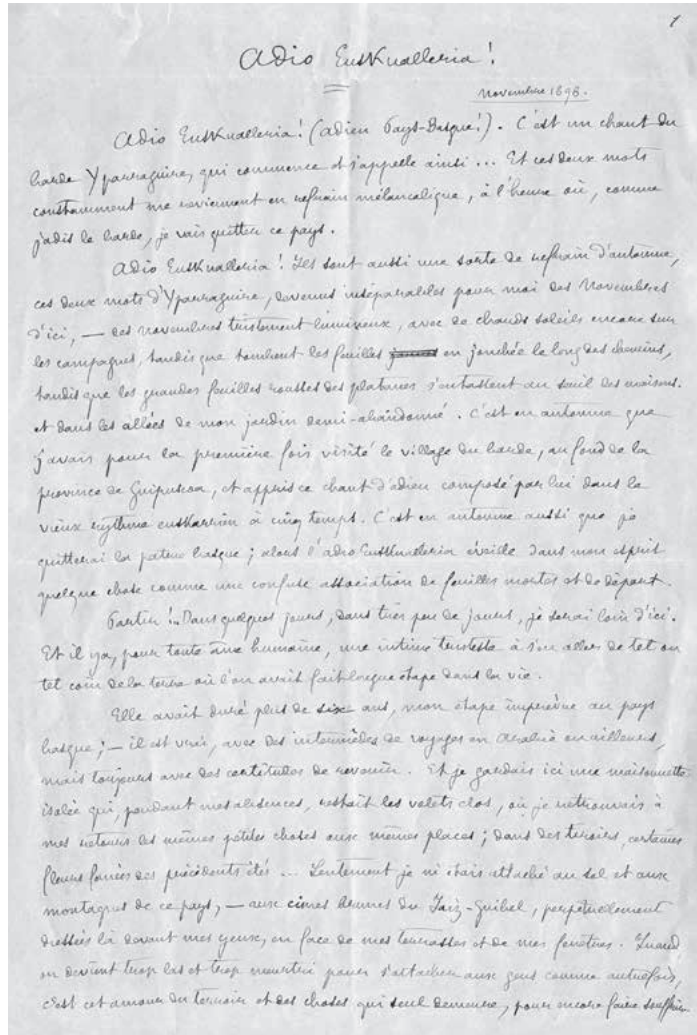 1
Adio Euskualleria!
Novembre 1898.
Adio Euskualleria! (adieu Pays-Basque!). C'est un chant du
barde Yparraguire, qui commence et s'appelle ainsi... Et ces deux mots
constamment me reviennent en refrain mélancolique, à l'heure où, comme
jadis le barde, je vais quitter ce pays.
Adio Euskualleria! Ils sont aussi une sorte de refrain d'automne,
ces deux mots d'Yparraguire, devenus inséparables pour moi des Novembres
d'ici, — des novembres tristement lumineux, avec de chauds soleils encore sur
les campagnes, tandis que tombent les feuilles en jonchée le long des chemins,
tandis que les grandes feuilles rousses des platanes s'entassent au seuil des maisons.
et dans les allées de mon jardin demi-abandonné. C'est en automne que
j'avais pour la première fois visité le village du barde, au fond de la
province de Guipuscoa, et appris ce chant d'adieu composé par lui dans le
vieux rythme euskarien à cinq temps. C'est en automne aussi que je
quitterai la patrie basque; alors l'adio Euskualleria éveille dans mon esprit
quelque chose comme une confuse association de feuilles mortes et de départ.
Partir!.. Dans quelques jours, dans très peu de jours, je serai loin d'ici.
Et il y a, pour toute âme humaine, une intime tristesse à s'en aller de tel ou
tel coin de la terre où l'on avait fait longue étape dans la vie.
Elle avait duré plus de six ans, mon étape imprévue au pays
basque; — il est vrai, avec des intermèdes de voyages en Arabie ou ailleurs,
mais toujours avec des certitudes de revenir. Et je gardais ici une maisonnette
isolée qui, pendant mes absences, restait les volets clos, où je retrouvais à
mes retours les mêmes petites choses aux mêmes places; dans des tiroirs, certaines
fleurs fanées des précédents étés... Lentement je m'étais attaché au sol et aux
montagnes de ce pays, — aux cimes brunes du Jaïz-Quibel, perpétuellement
dressées là devant mes yeux, en face de mes terrasses et de mes fenêtres. Quand
on devient trop las et trop meurtri pour s'attacher aux gens comme autrefois,
c'est cet amour du terroir et des choses qui seul demeure, pour encore faire souffrir.